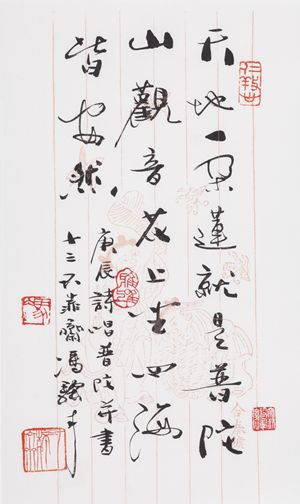 天地一朵蓮就是普陀
山觀音花上坐四海
皆安然
庚辰詩唱普陀并書
三不靠齋馮驥才